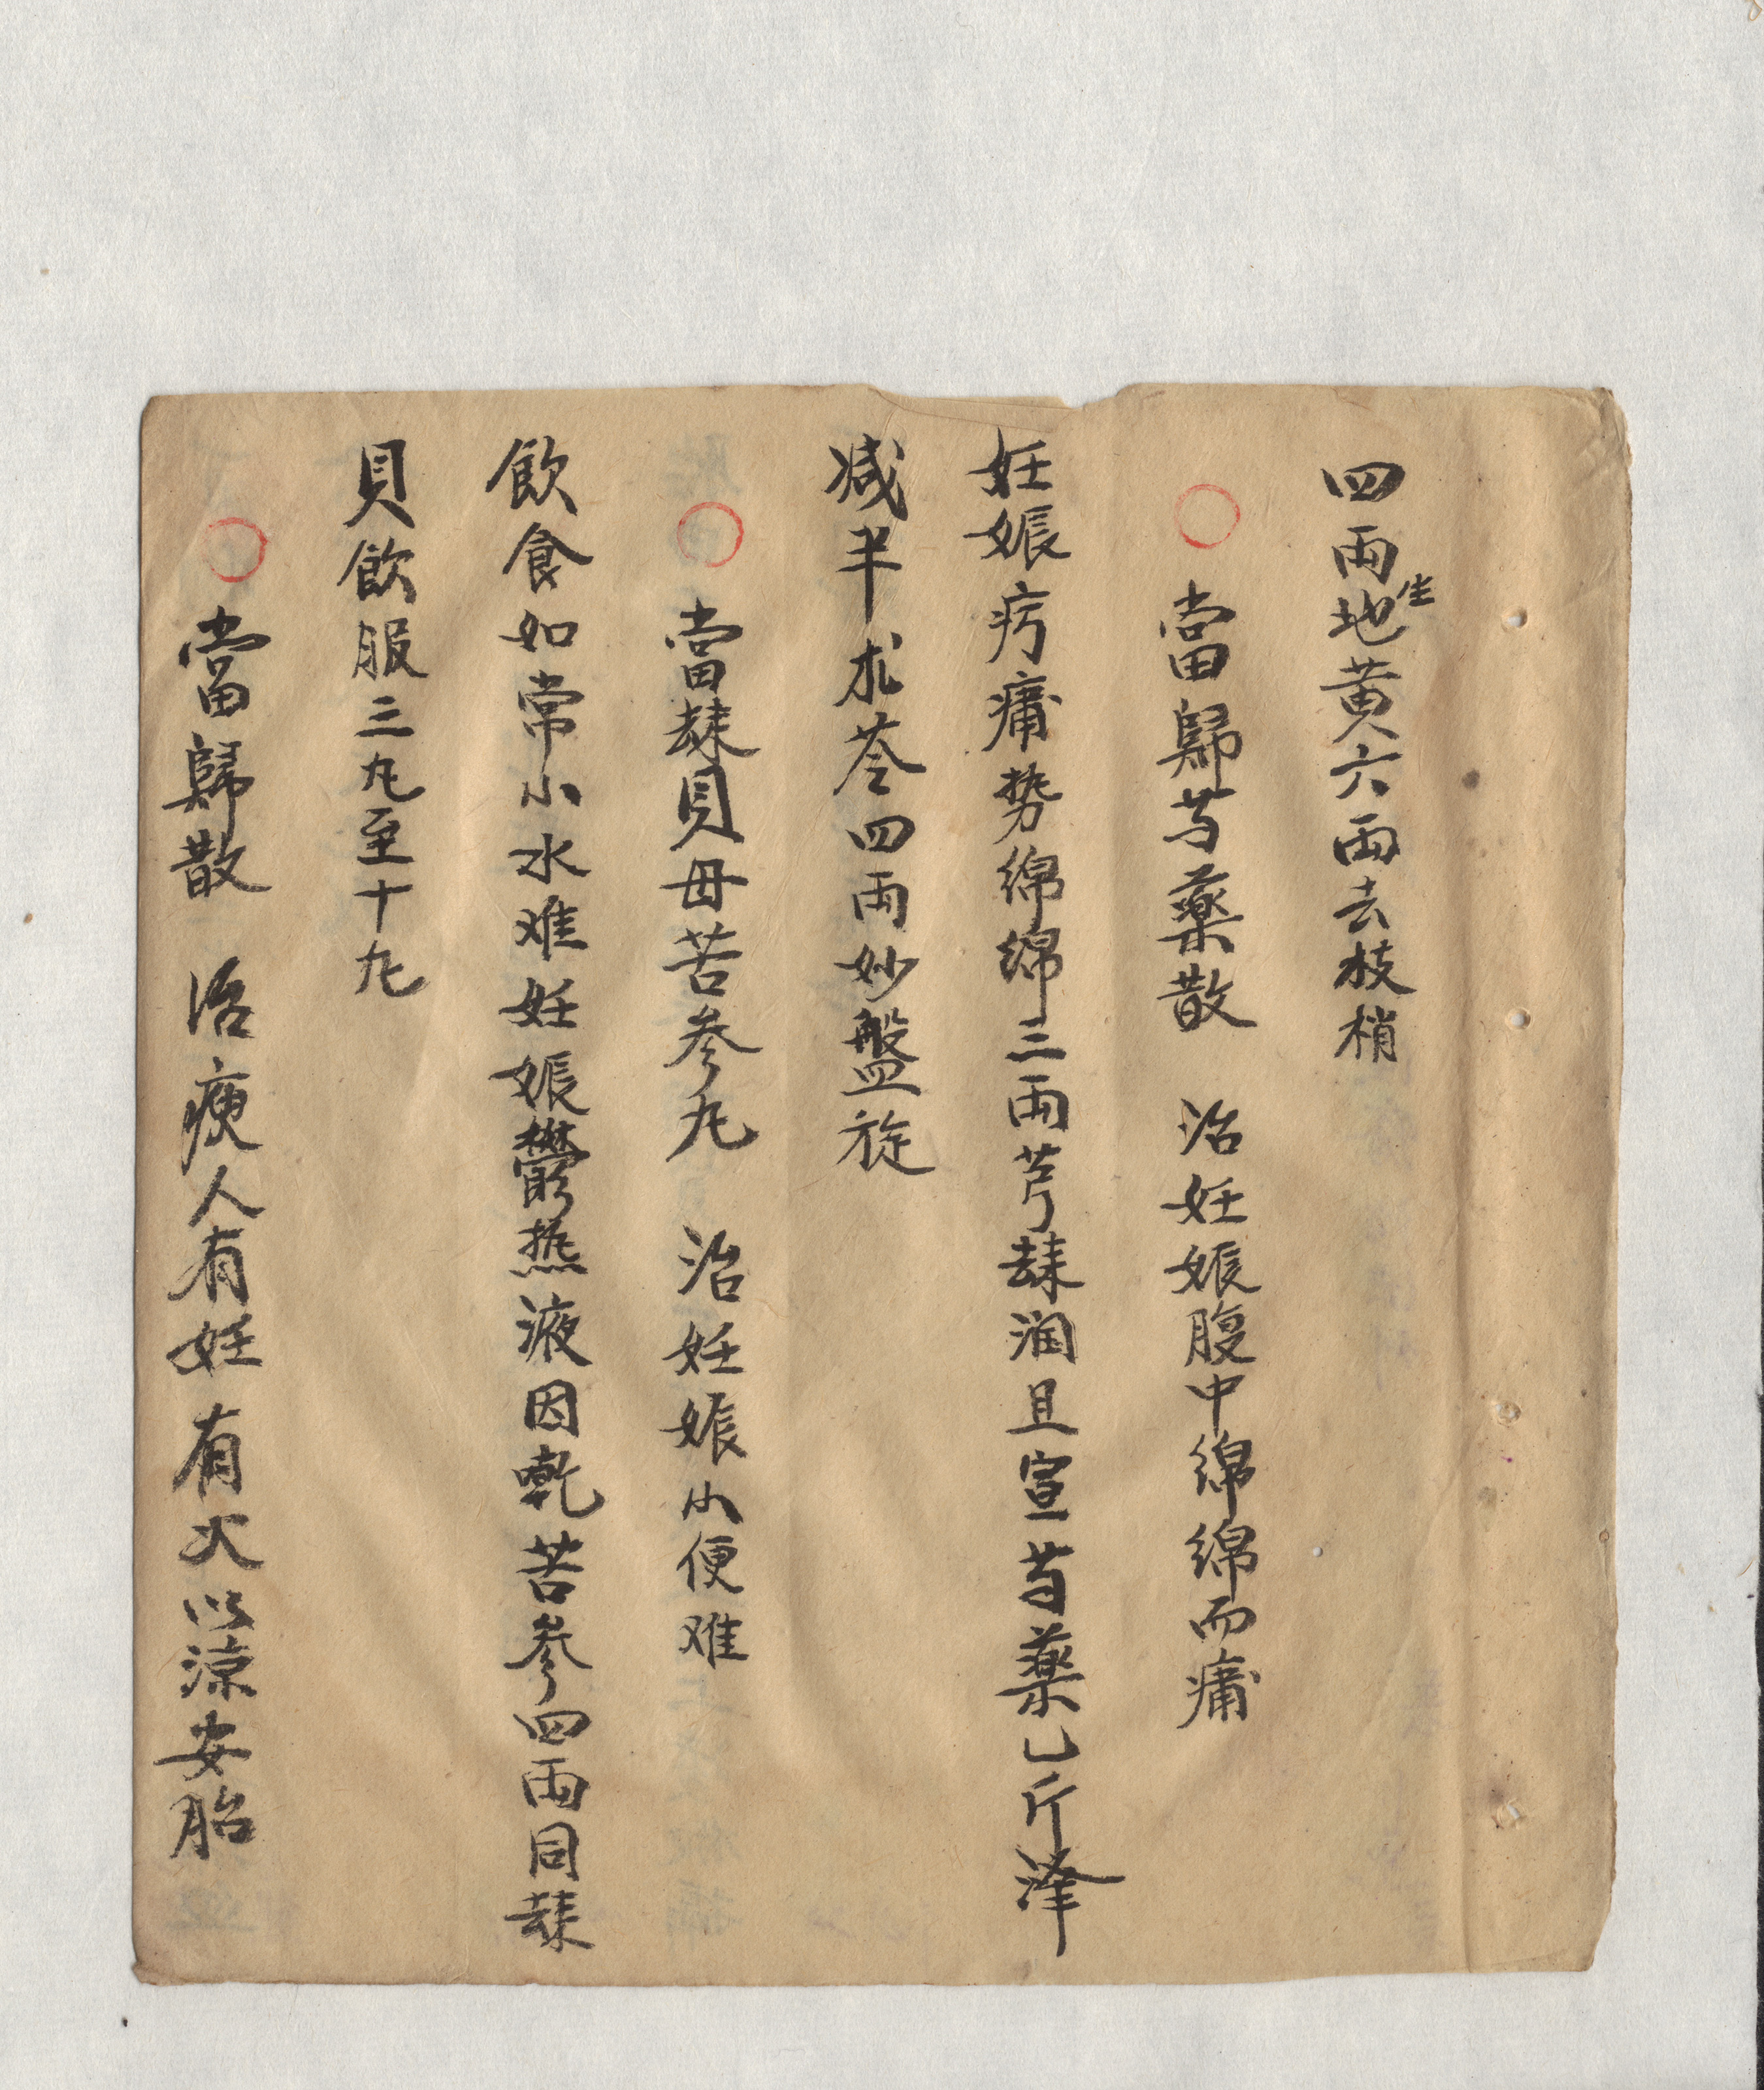 四兩生地黄六兩去枝梢
○ 當歸芍藥散 治妊娠腹中綿綿而痛
妊娠㽲痛势綿綿三兩芎歸润且宣芍藥乙斤泽
减半朮苓四兩妙盤旋
○ 當歸貝母苦參丸 治妊娠小便难
飲食如常小水难妊娠鬱热液因乾苦參四兩同歸
貝飲服三丸至十丸
○ 當歸散 治瘦人有妊有火以涼安胎